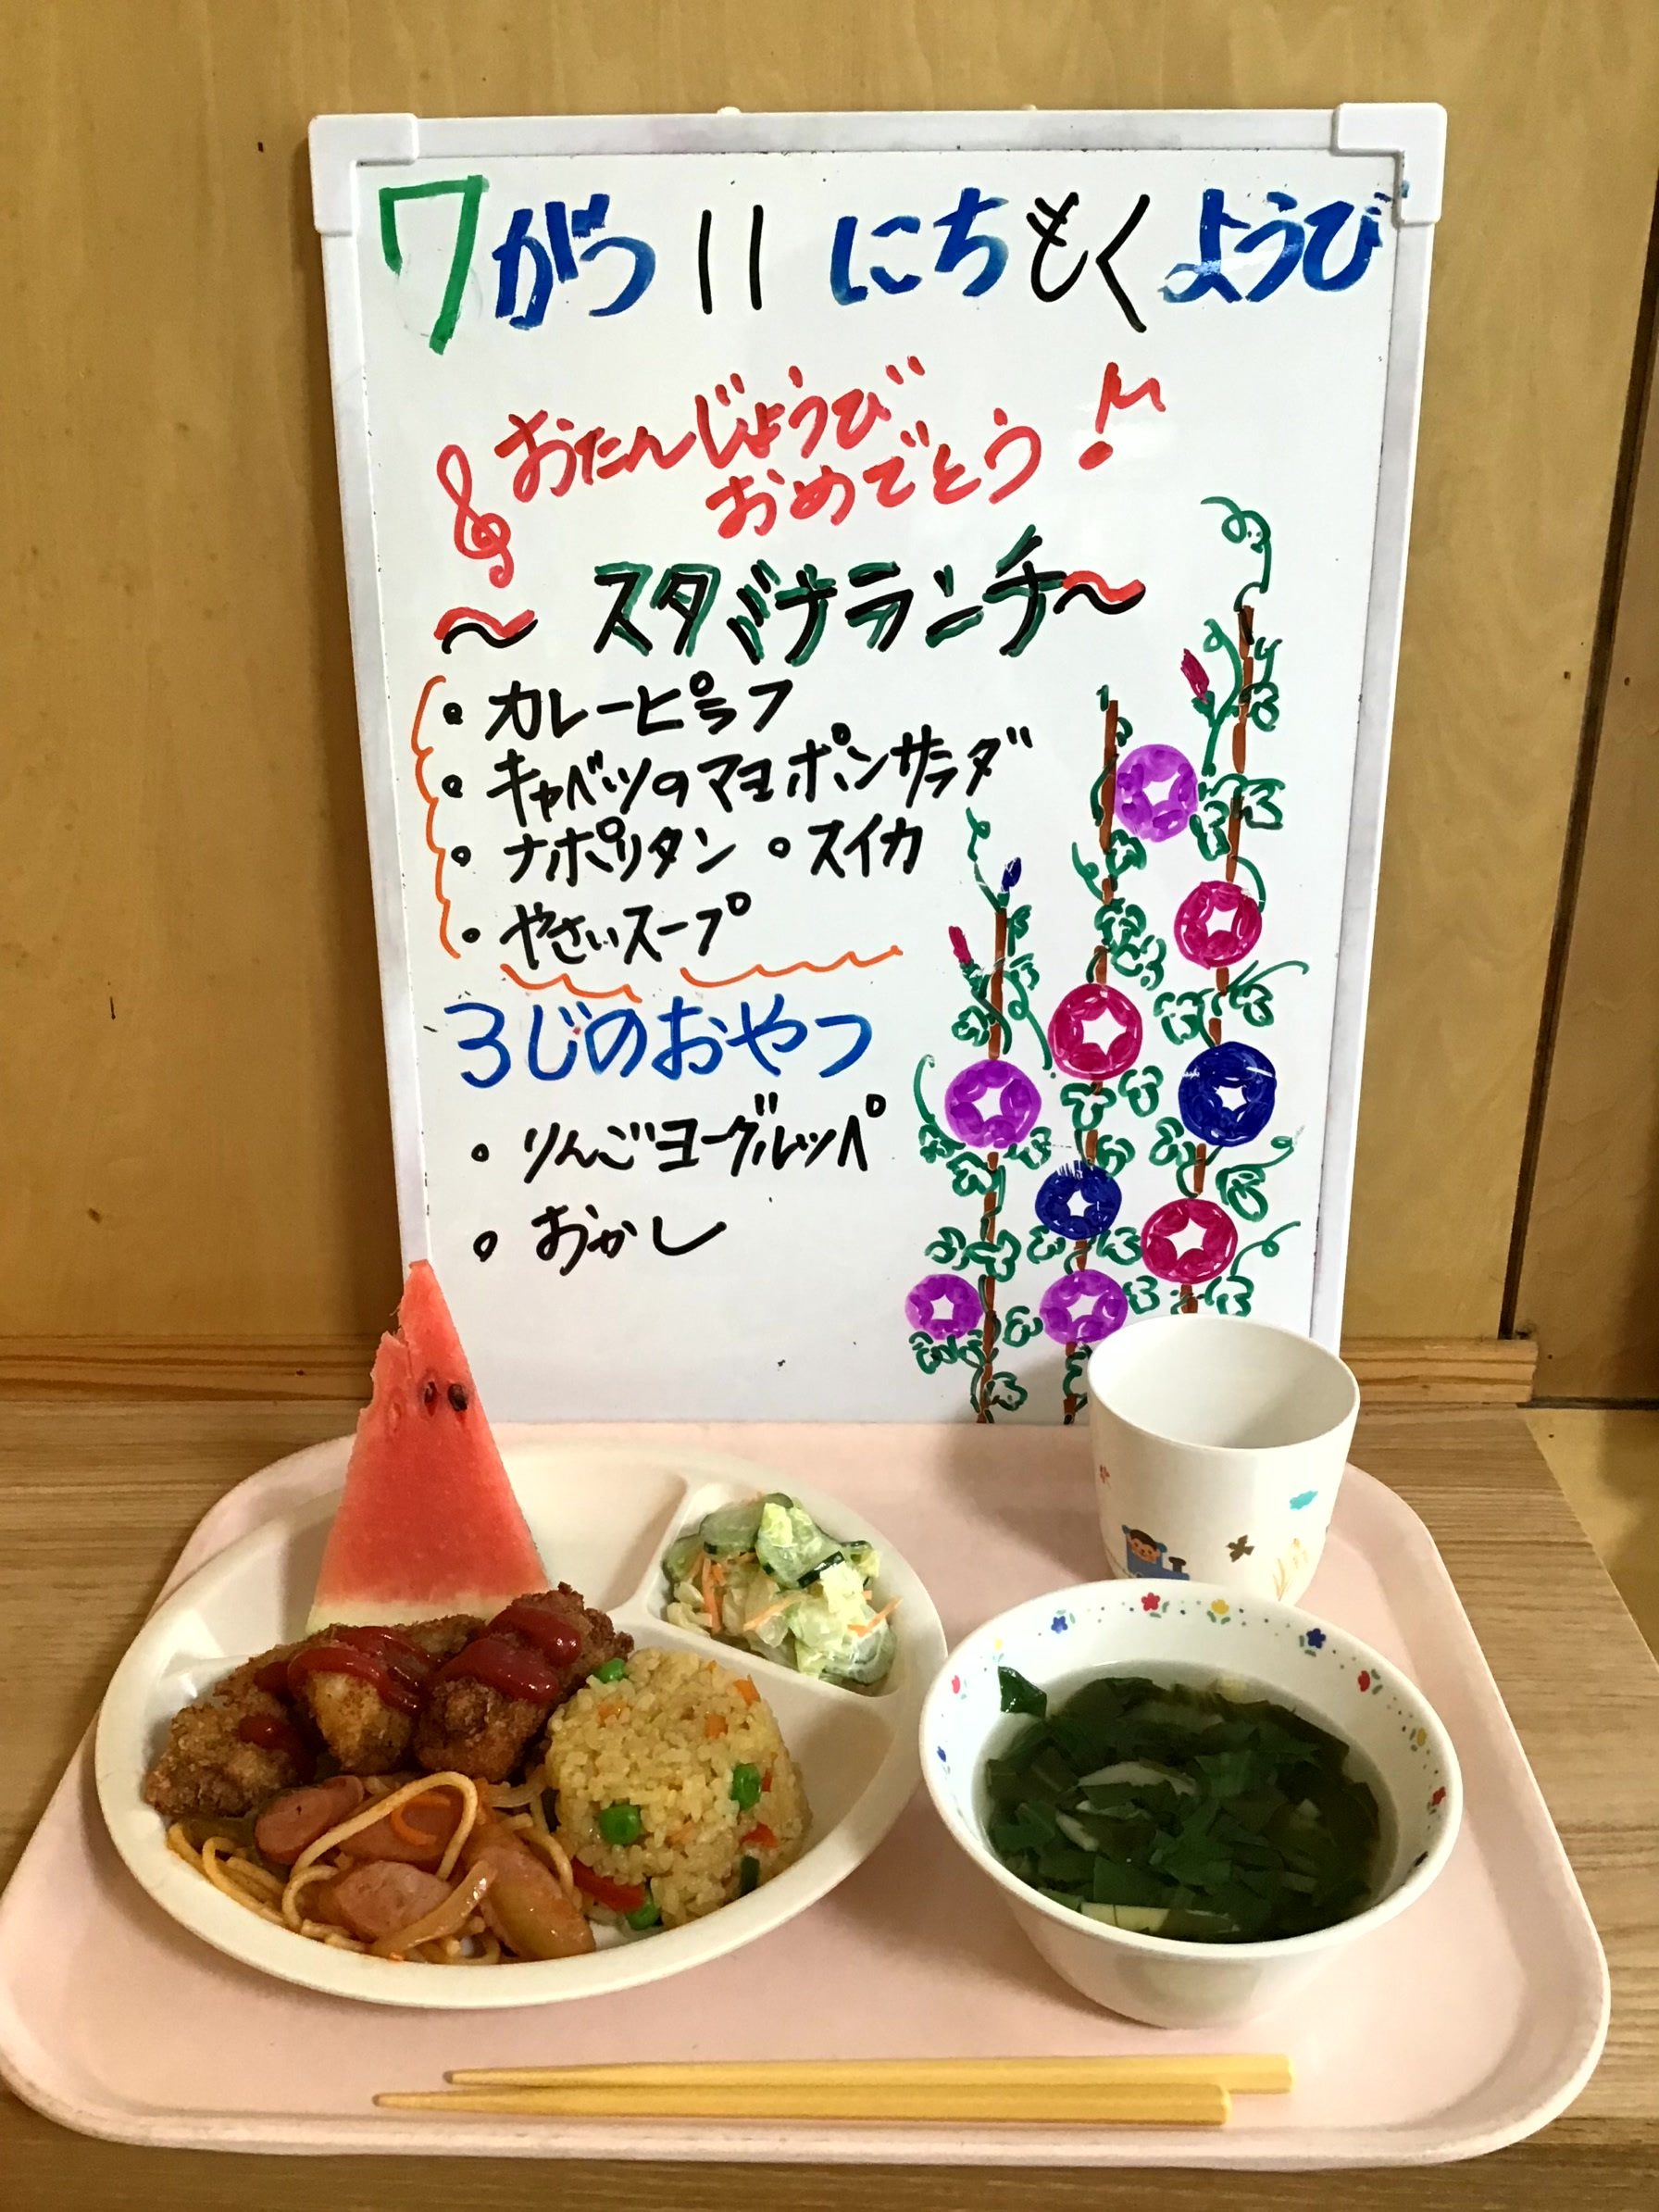 7がつ11にちもくようび
おたんじょうび
おめでとう!
~スタバナランチ~
・カレーピラフ
・キャベツのマヨポンサラダ
・ナポリタン ・スイカ
・やさいスープ
3じのおやつ
・りんごヨーグルッペ
・おかし